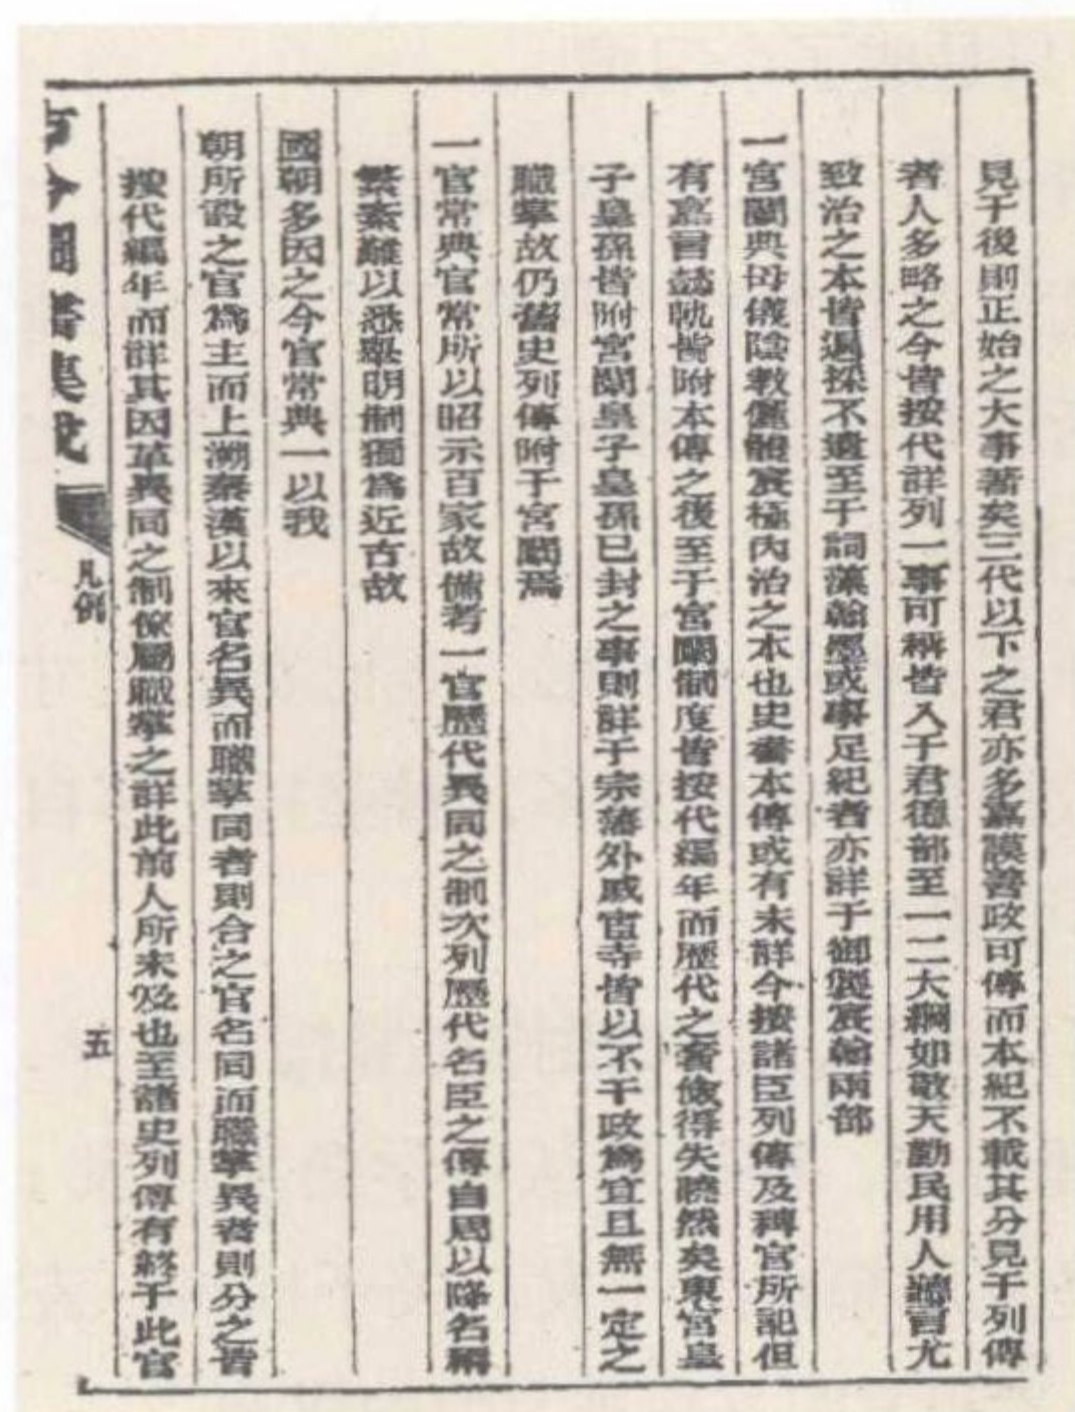 見于後則正始之大事著矣三代以下之君亦多嘉謨善政可傳而本紀不載其分見于列傳
者人多略之今皆按代詳列一事可稱皆入于君德部至一二大綱如敬天勤民用人聽言尤
致治之本皆遍採不遺至于詞藻翰墨或事足紀者亦詳于御製宸翰兩部
一宮闈典母儀陰教儷體宸極內治之本也史書本傳或有未詳今按諸臣列傳及稗官所記但
有嘉言懿軌皆附本傳之後至于宮闈制度皆按代編年而歷代之奢儉得失瞭然矣東宮皇
子皇孫皆附宮闈皇子皇孫已封之事則詳于宗藩外戚宦寺皆以不干政為宜且無一定之
職掌故仍舊史列傳附于宮闈焉
一官常典官常所以昭示百家故備考一官歷代異同之制次列歷代名臣之傳自周以降名稱
繁紊難以悉舉明制獨為近古故
國朝多因之今官常典一以我
朝所設之官為主而上溯秦漢以來官名異而職掌同者則合之官名同而職掌異者則分之皆
按代編年而詳其因革異同之制僚屬職掌之詳此前人所未及也至諸史列傳有終于此官
古今圖書集成
凡例
五